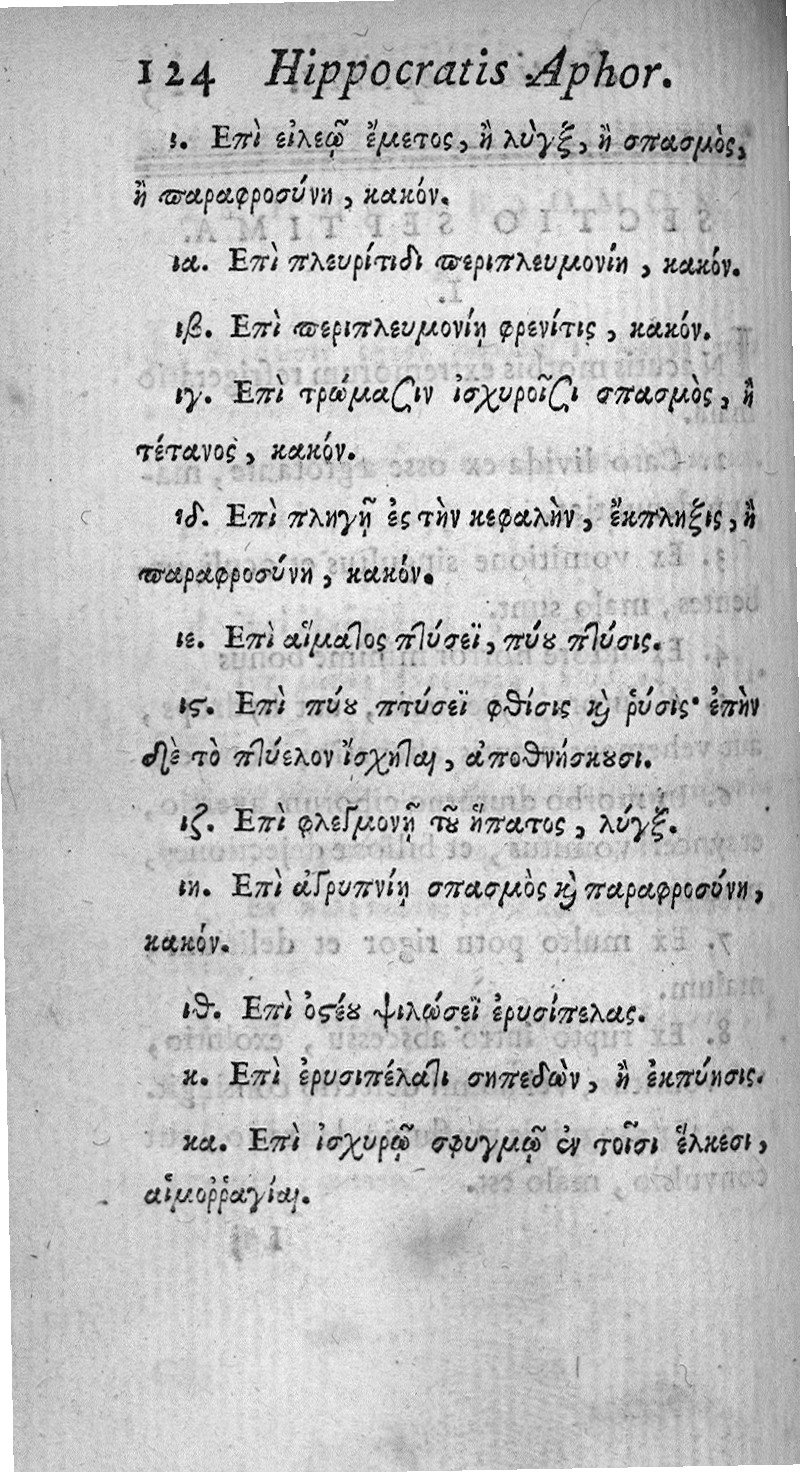 124 Hippocratis Aphor.
ι. Επὶ εἰλεῷ ἔμετος, ἢ λὺγξ, ἢ σπασμὸς,
ἢ παραφροσύνη, κακόν.
ια. Επὶ πλευρίτιδι περιπλευμονίη, κακόν.
ιβ. Επὶ περιπλευμονίῃ φρενίτις, κακόν.
ιγ. Επὶ τρώμαζιν ἰσχυροῖζι σπασμὸς, ἢ
τέτανος, κακόν.
ιδ. Επὶ πληγῇ ἐς τὴν κεφαλὴν, ἔκπληξις, ἢ
παραφροσύνη, κακόν.
ιε. Επὶ αἵματος πτύσεϊ, πύου πτύσις.
ιϛ. Επὶ πύου πτύσεϊ φθίσις καὶ ῥύσις· ἐπὴν
δὲ τὸ πτύελον ἴσχηται, ἀποθνήσκουσι.
ιζ. Επὶ φλεγμονῇ τοῦ ἥπατος, λύγξ.
ιη. Επὶ ἀγρυπνίῃ σπασμὸς καὶ παραφροσύνη,
κακόν.
ιθ. Επὶ ὀστέου ψιλώσεϊ ἐρυσίπελας.
κ. Επὶ ἐρυσιπέλατι σηπεδὼν, ἢ ἐκπύησις.
κα. Επὶ ἰσχυρῷ σφυγμῷ ἐν τοῖσι ἕλκεσι,
αἱμοῤῥαγίαι.